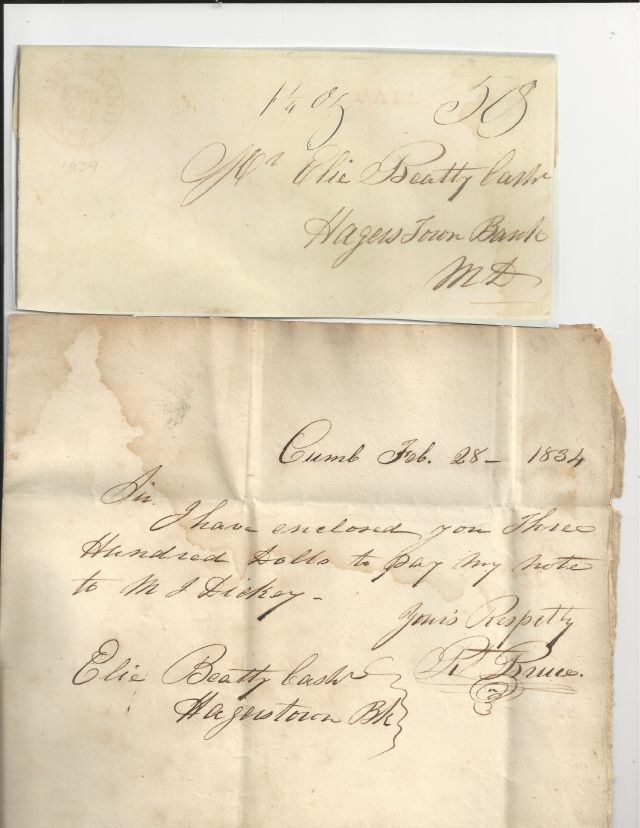 1834
1¼ oz PAID 58
Mr Elie Beatty Cashr
Hagers Town Bank
MD
Cumb Feb. 28 - 1834
Sir.
I have enclosed you Three
Hundred Dolls to pay my note
to M J Dickey -
Yours Respetty
R Bruce.
Elie Beatty Cashr
Hagerstown Bk